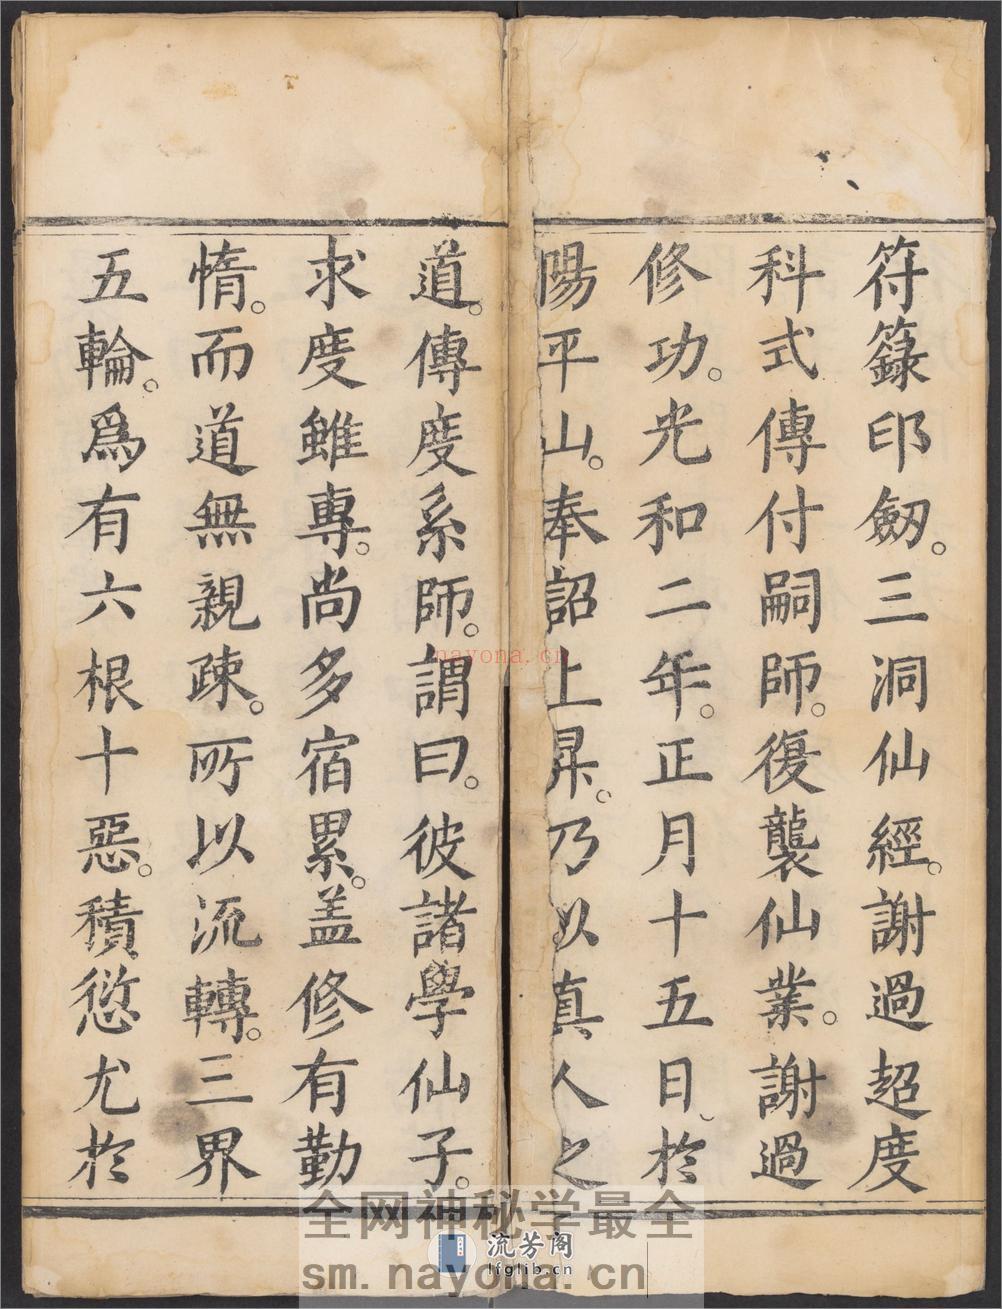 符籙印劒。三洞仙經。謝過超度
科式傳付嗣師。復襲仙業。謝過
修功。光和二年。正月十五日、於
陽平山。奉詔上昇。乃以真人之
道。傳度系師。謂曰。彼諸學仙子。
求度雖專。尚多宿累。盖修有勤
惰。而道無親疎。所以流轉。三界
五輪。爲有六根十惡。積愆尤於
nayona.cn
全网神秘学最全
流芳阁
lfglib.cn
sm.nayona.cn